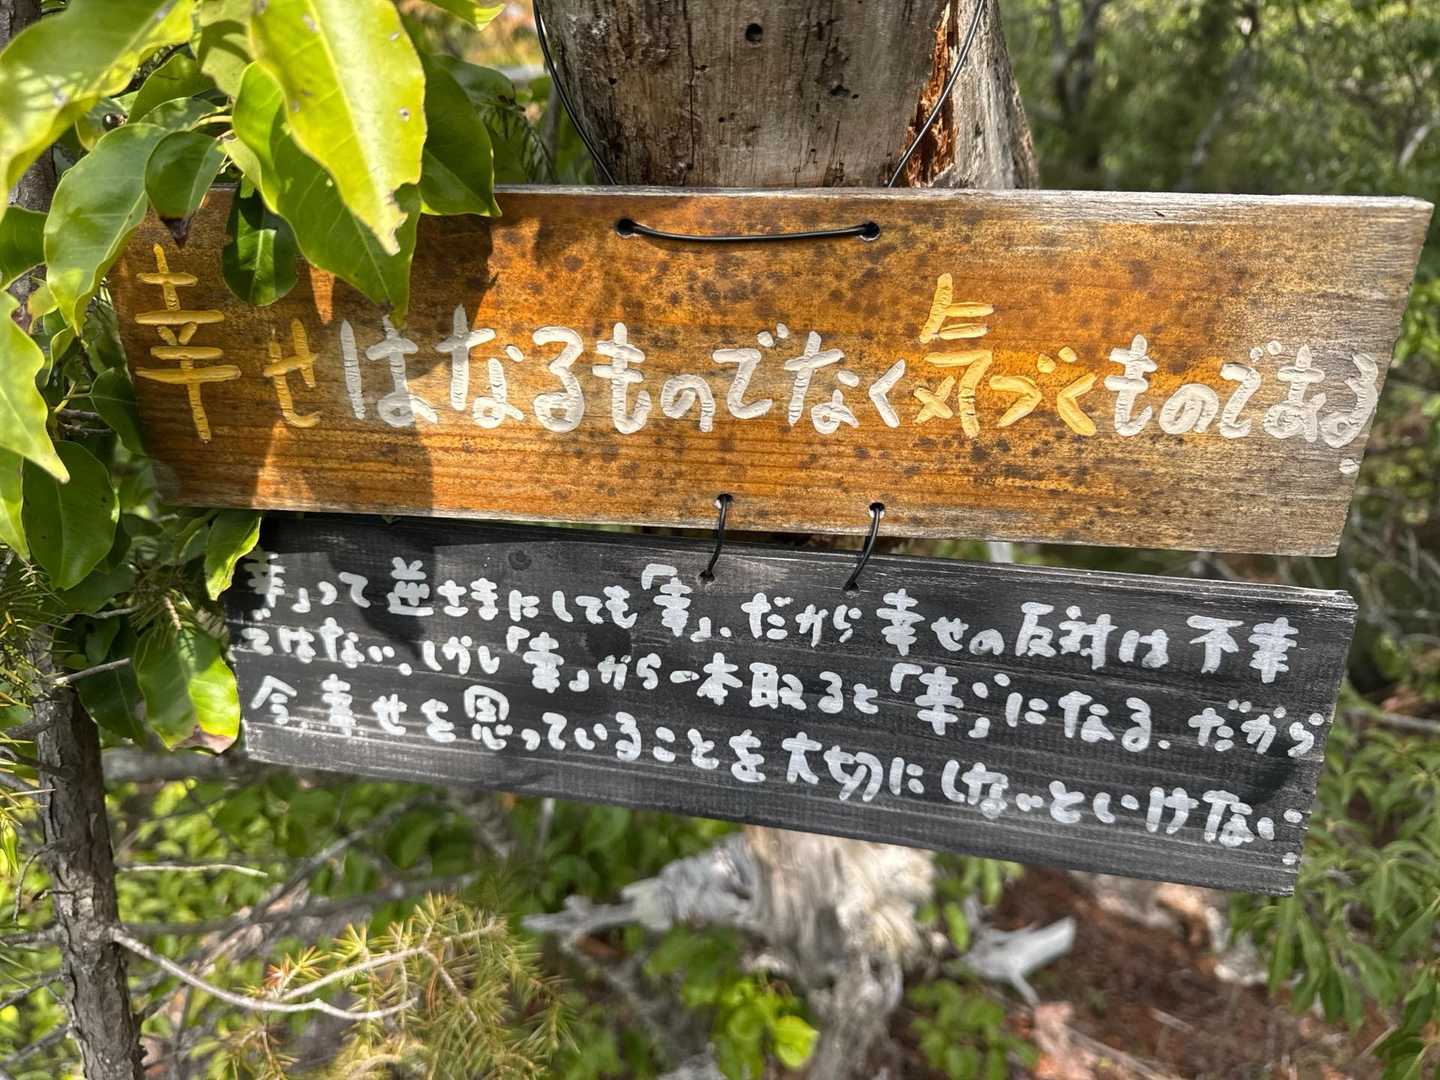 幸せはなるものでなく気づくものである.
「幸」って逆さまにしても「幸」、だから幸せの反対は不幸
ではない。しかし「幸」から一本取ると「辛い」になる、だから
今、幸せを思っていることを大切にしないといけない.